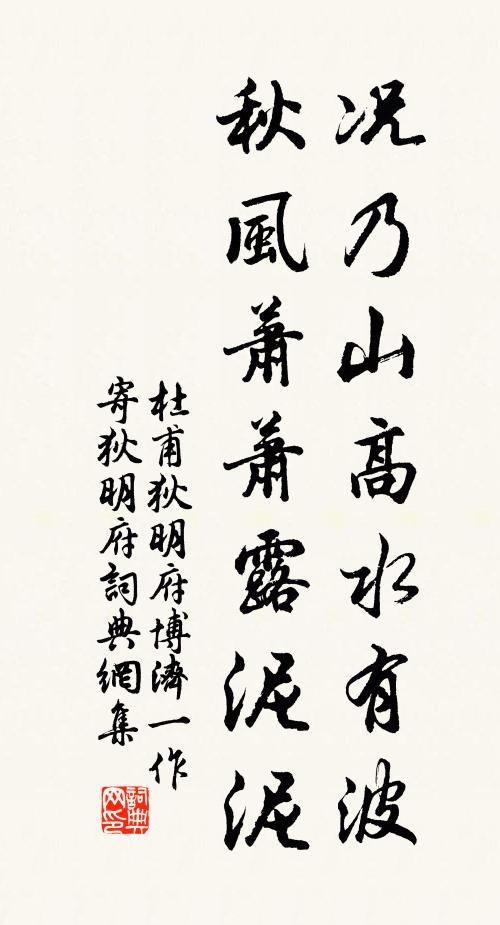 况乃山高水有波
秋風蕭蕭露泥泥
杜甫狄明府博濟一作
寄狄明府詞典網集
詞典
网印